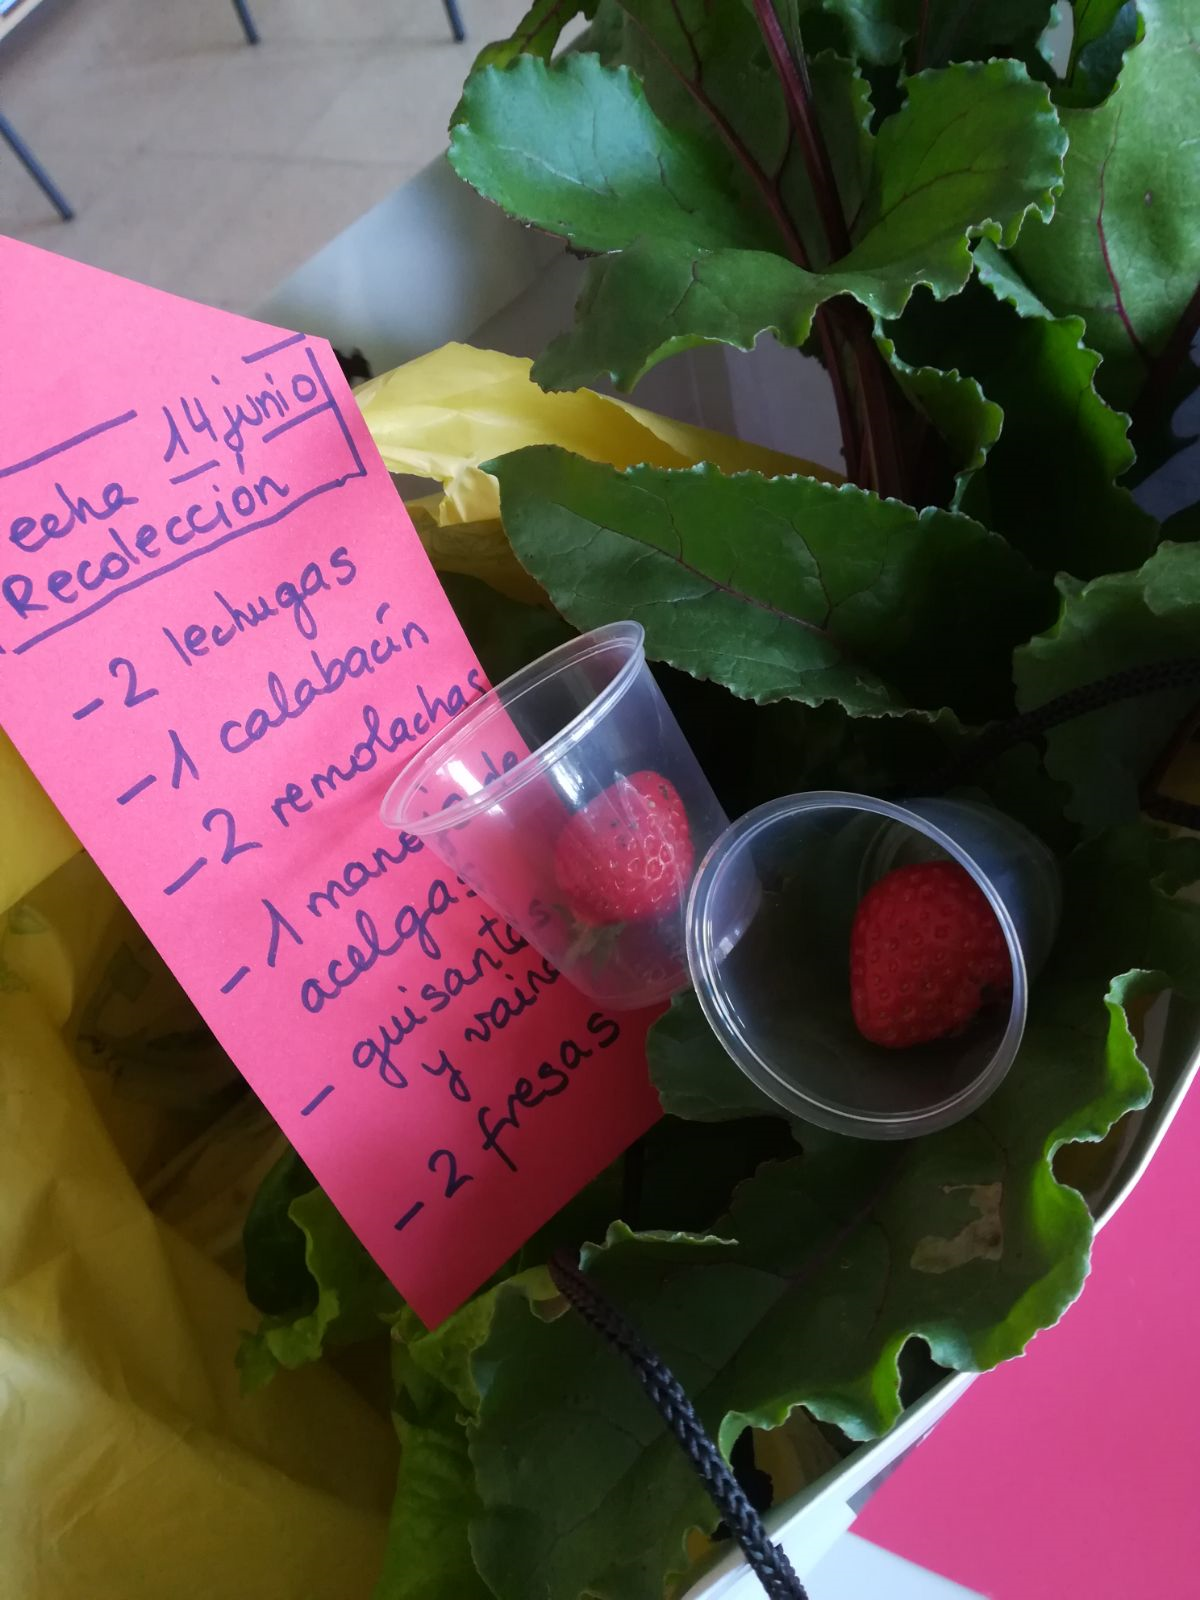 echa 14 junio
Recolección
- 2 lechugas
- 1 calabacín
- 2 remolachas
- 1 de
acelgas
- guisantes
y
- 2 fresas